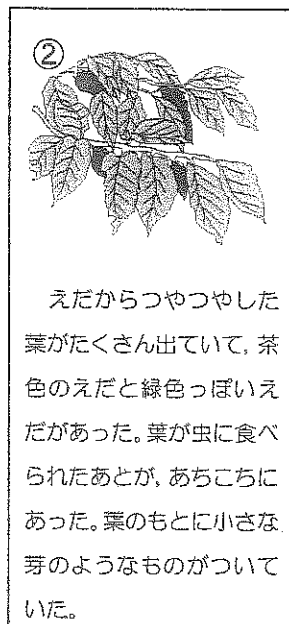 ②
えだからつやつやした
葉がたくさん出ていて，茶
色のえだと緑色っぽいえ
だがあった。葉が虫に食べ
られたあとが，あちこちに
あった。葉のもとに小さな
芽のようなものがついて
いた。